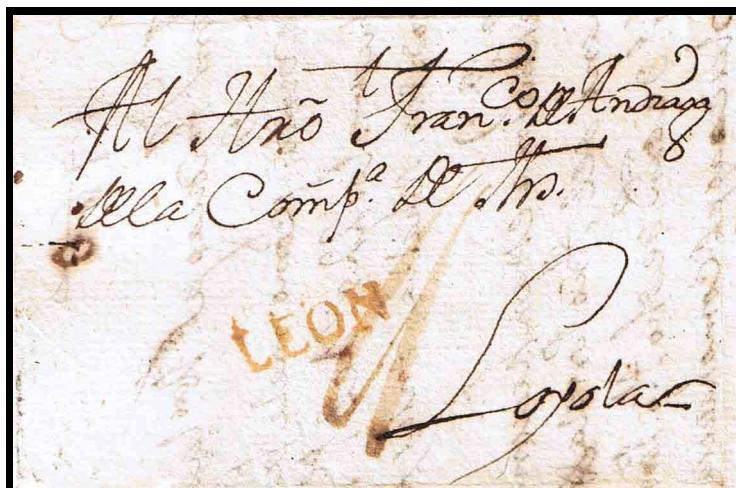 Al Hrõ Fran.co de Andiaga
dela Comp.a De Jhs.
LEON
Loyola